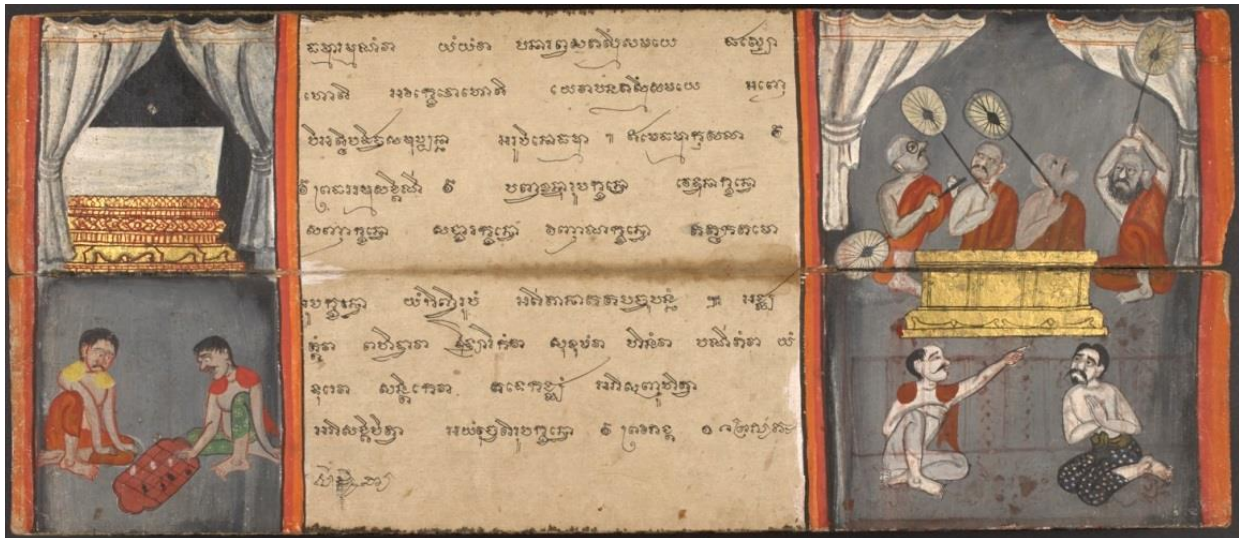 ធម្មារម្មណំវា យំយំវា បនារព្ភតស្មិំសមយេ ផស្សោ
ហោតិ អវិក្ខេបោហោតិ យេវាបនតស្មិំសមយេ អញ្ញេ
បិអត្ថិបដិច្ចសមុប្បន្នា អរូបិនោធម្មា ៕ ឥមេធម្មាកុសលា ៚
បញ្ចក្ខន្ធារូបក្ខន្ធោ វេទនាក្ខន្ធោ
សញ្ញាក្ខន្ធោ សង្ខារក្ខន្ធោ វិញ្ញាណក្ខន្ធោ តត្ថកតមោ
រូបក្ខន្ធោ យំកិញ្ចិរូបំ អតីតានាគតបច្ចុប្បន្នំ អជ្ឈ
ត្តំវា ពហិទ្ធាវា ឱឡារិកំវា សុខុមំវា ហីនំវា បណីតំវា យំ
ទូរេវា សន្តិកេវា តទេកជ្ឈំ អភិសញ្ញូហិត្វា
អភិសង្ខិបិត្វា អយំវុច្ចតិរូបក្ខន្ធោ